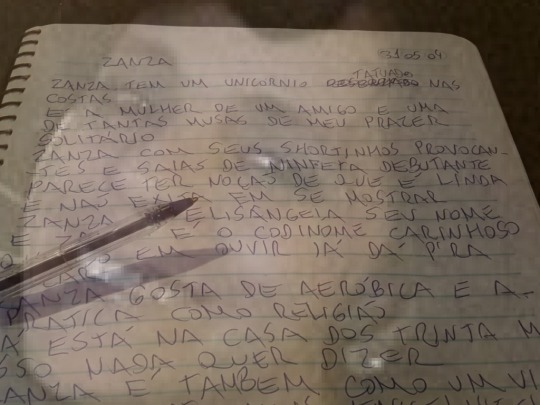 ZANZA
31 05 09
ZANZA TEM UM UNICÓRNIO TATUADO NAS
COSTAS
E É A MULHER DE UM AMIGO E UMA
DE TANTAS MUSAS DE MEU PRAZER
SOLITÁRIO
ZANZA COM SEUS SHORTINHOS PROVOCAN-
TES E SAIAS DE NINFETA DEBUTANTE
PARECE TER NOÇÃO DE QUE É LINDA
E NÃO EM SE MOSTRAR
ZANZA ELISÂNGELA SEU NOME
E É O CODINOME CARINHOSO
EM OUVIR JÁ DÁ PIRA
ZANZA GOSTA DE AERÓBICA E A
PRATICA COMO RELIGIÃO
JÁ ESTÁ NA CASA DOS TRINTA M
SSO NADA QUER DIZER
ZANZA É TAMBÉM COMO UM VI